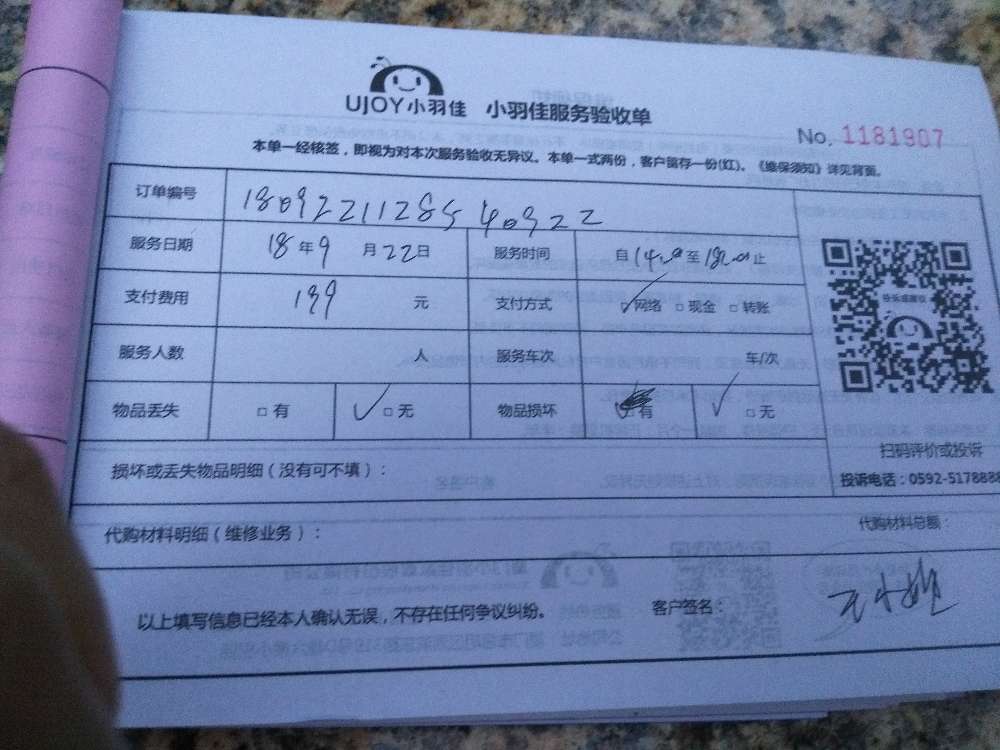 UJOY小羽佳 小羽佳服务验收单
No. 1181907
本单一经核签，即视为对本次服务验收无异议。本单一式两份，客户留存一份(红)。《维保须知》详见背面。
订单编号 1809221128540922
服务日期 18年9月22日 服务时间 自14:00至18:00止
支付费用 199元 支付方式 网络 现金 转账
服务人数 人 服务车次 车/次
物品丢失 有 无 物品损坏 有 无
扫码评价或投诉
损坏或丢失物品明细（没有可不填）：
投诉电话：0592-5178888
代购材料明细（维修业务）： 代购材料总额：
以上填写信息已经本人确认无误，不存在任何争议纠纷。 客户签名：